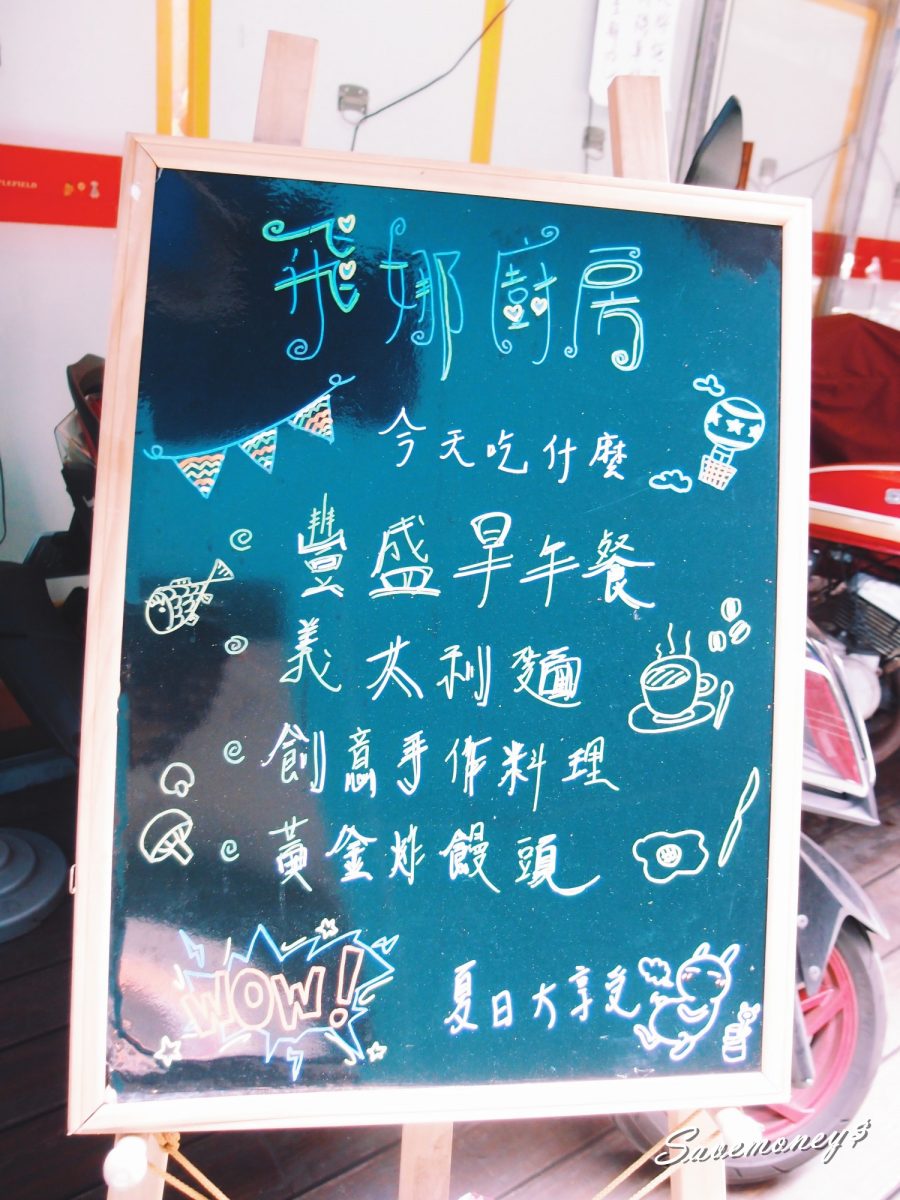 飛娜廚房
今天吃什麼
豐盛早午餐
義大利麵
創意手作料理
黃金炸饅頭
WOW!
夏日大享受
Savemoney$